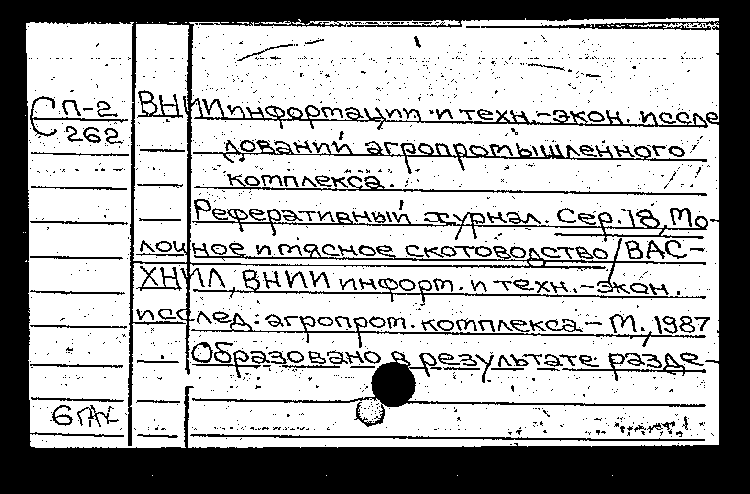 СП-2
262
ВНИИинформации и техн.-экон. иссле
дований агропромышленного
комплекса.
Реферативный журнал. Сер. 18, Мо-
лочное и мясное скотоводство / ВАС-
ХНИЛ, ВНИИ информ. и техн.-экон.
исслед. агропром. комплекса – М., 1987
Образовано в результате разде-